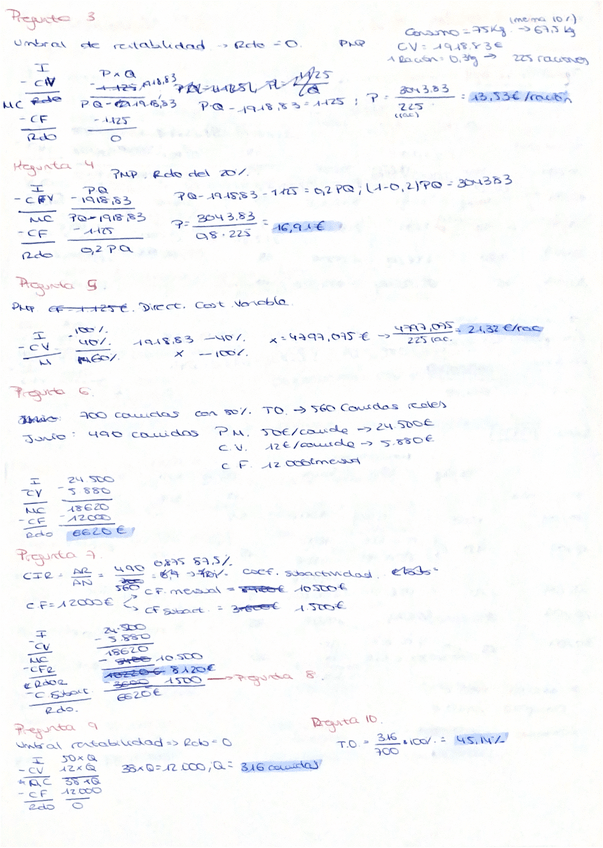 Pregunta 3
Consumo = 75kg (merma 10%) → 67,5 kg
Umbral de rentabilidad → Rdo = 0. PMP CV = 1918.83€
1 Ración = 0,3kg → 225 raciones
I PxQ
- CV 1918,83
MC PQ - 1918,83 PQ - 1918,83 = 1125 ; P = 3043.83 / 225 (rac) = 13,53€/ración
- CF - 1.125
Rdo 0
Pregunta 4
PMP. Rdo del 20%.
I PQ
- CV - 1918,83 PQ - 1918,83 - 1125 = 0,2PQ ; (1-0,2)PQ = 3043,83
MC PQ - 1918,83
- CF - 1125 P = 3043.83 / 0,8 · 225 = 16,91€
Rdo 0,2 PQ
Pregunta 5
PMP CF = 1.125€. Direct Cost Variable.
I 100%.
- CV - 40%. 1918.83 - 40% x = 4797,075€ → 4797,075 / 225 rac. = 21,32€/rac
M 60% x - 100%.
Pregunta 6
700 comidas con 80% T.O. → 560 comidas reales
Junio: 490 comidas P.M. 50€/comida → 24.500€
C.V. 12€/comida → 5.880€
C.F. 12.000€/mensual
I 24.500
CV - 5.880
MC 18620
- CF - 12000
Rdo 6620€
Pregunta 7.
CIR = AR / AN = 490 / 560 = 0,875 87,5% coef. subactividad.
CF = 12000€ CF. mensual = 10.500€
CF subact. = 1.500€
I 24.500
CV - 5.880
MC 18620
- CFR - 10.500
Rdo R 8120€
- C. Subact. 1500 → Pregunta 8.
Rdo. 6620€
Pregunta 9
Umbral rentabilidad => Rdo = 0
I 50xQ
- CV 12xQ 38xQ = 12.000, Q = 316 comidas
MC 38xQ
- CF 12000
Rdo 0
Pregunta 10.
T.O. = 316 / 700 · 100%. = 45,14%